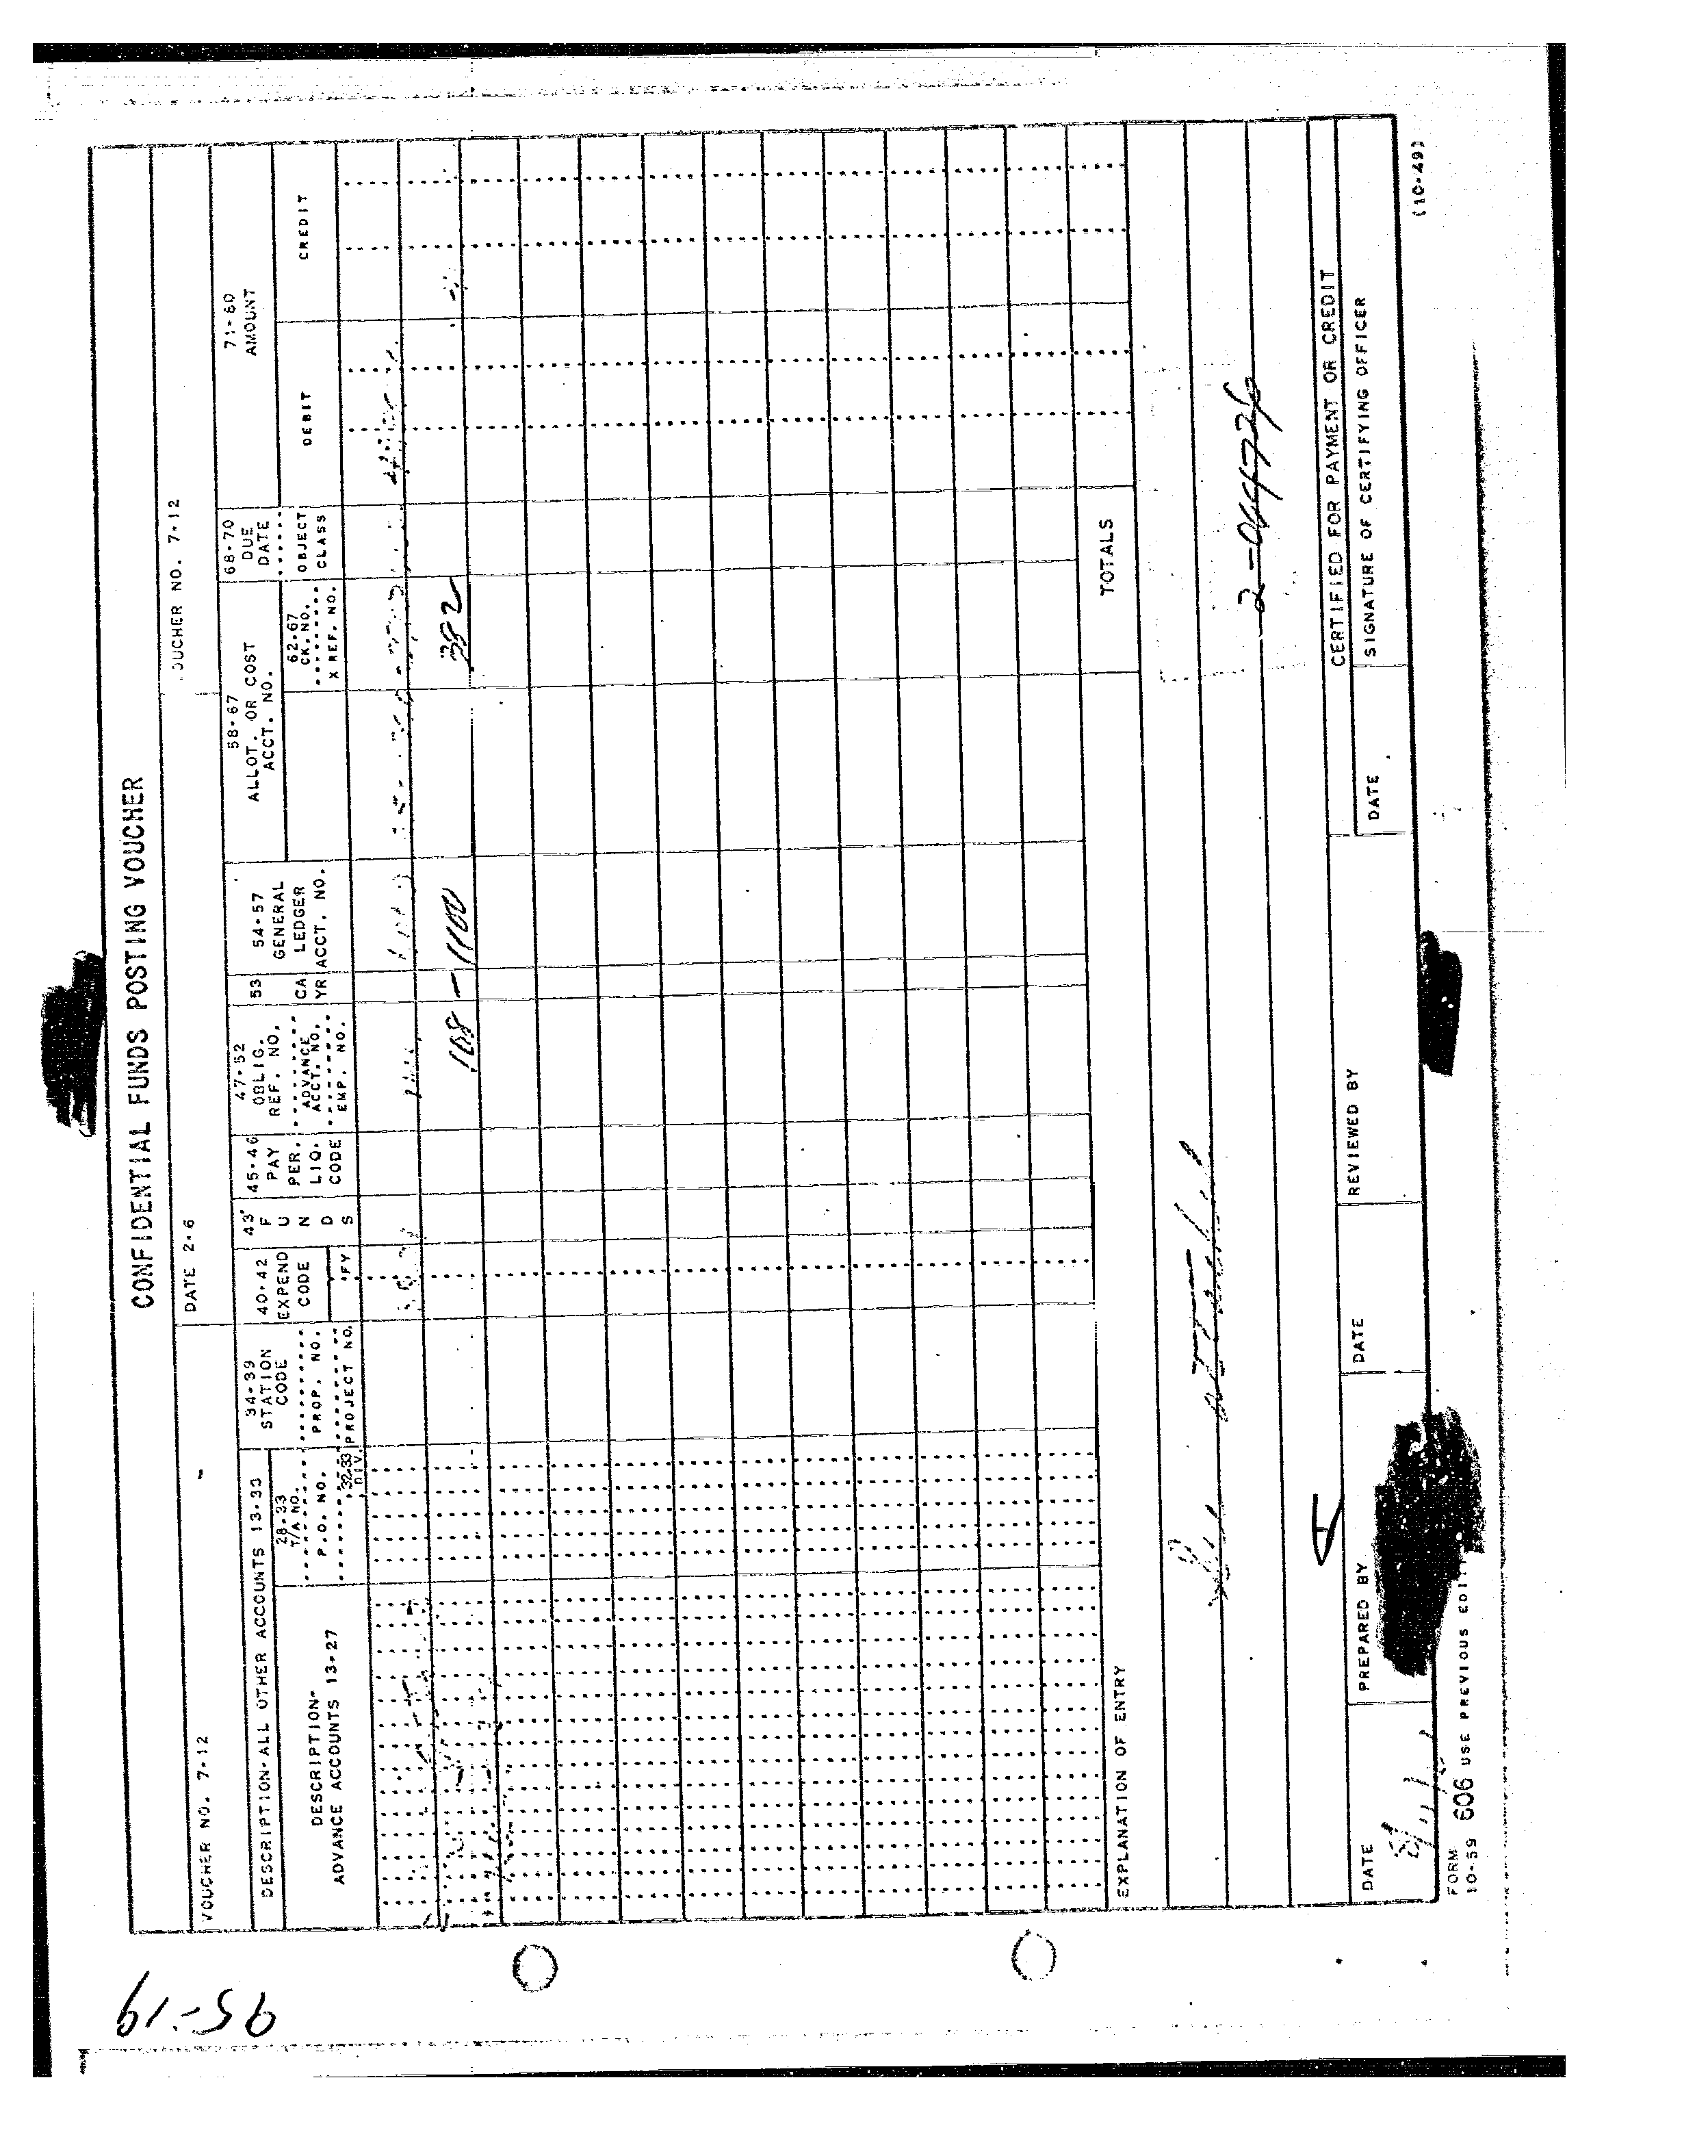 95-19
CONFIDENTIAL FUNDS POSTING VOUCHER
VOUCHER NO. 7-12 DATE 2-6 OUCHER NO. 7-12
DESCRIPTION-ALL OTHER ACCOUNTS 13-33
DESCRIPTION-
ADVANCE ACCOUNTS 13-27
28-33
T/A NO.
P.O. NO.
32-33
DIV.
34-39
STATION
CODE
PROP. NO.
PROJECT NO.
40-42
EXPEND
CODE
FY
43
F
U
N
D
S
45-46
PAY
PER.
LIQ.
CODE
47-52
OBLIG.
REF. NO.
ADVANCE
ACCT. NO.
EMP. NO.
53
CA
YR
54-57
GENERAL
LEDGER
ACCT. NO.
58-67
ALLOT. OR COST
ACCT. NO.
62-67
CK. NO.
X REF. NO.
68-70
DUE
DATE
OBJECT
CLASS
71-80
AMOUNT
DEBIT
CREDIT
108 - 1100 382
TOTALS
EXPLANATION OF ENTRY
See attached
2-064726
CERTIFIED FOR PAYMENT OR CREDIT
DATE PREPARED BY DATE REVIEWED BY DATE SIGNATURE OF CERTIFYING OFFICER
FORM
10-59 606 USE PREVIOUS EDI
(10-49)